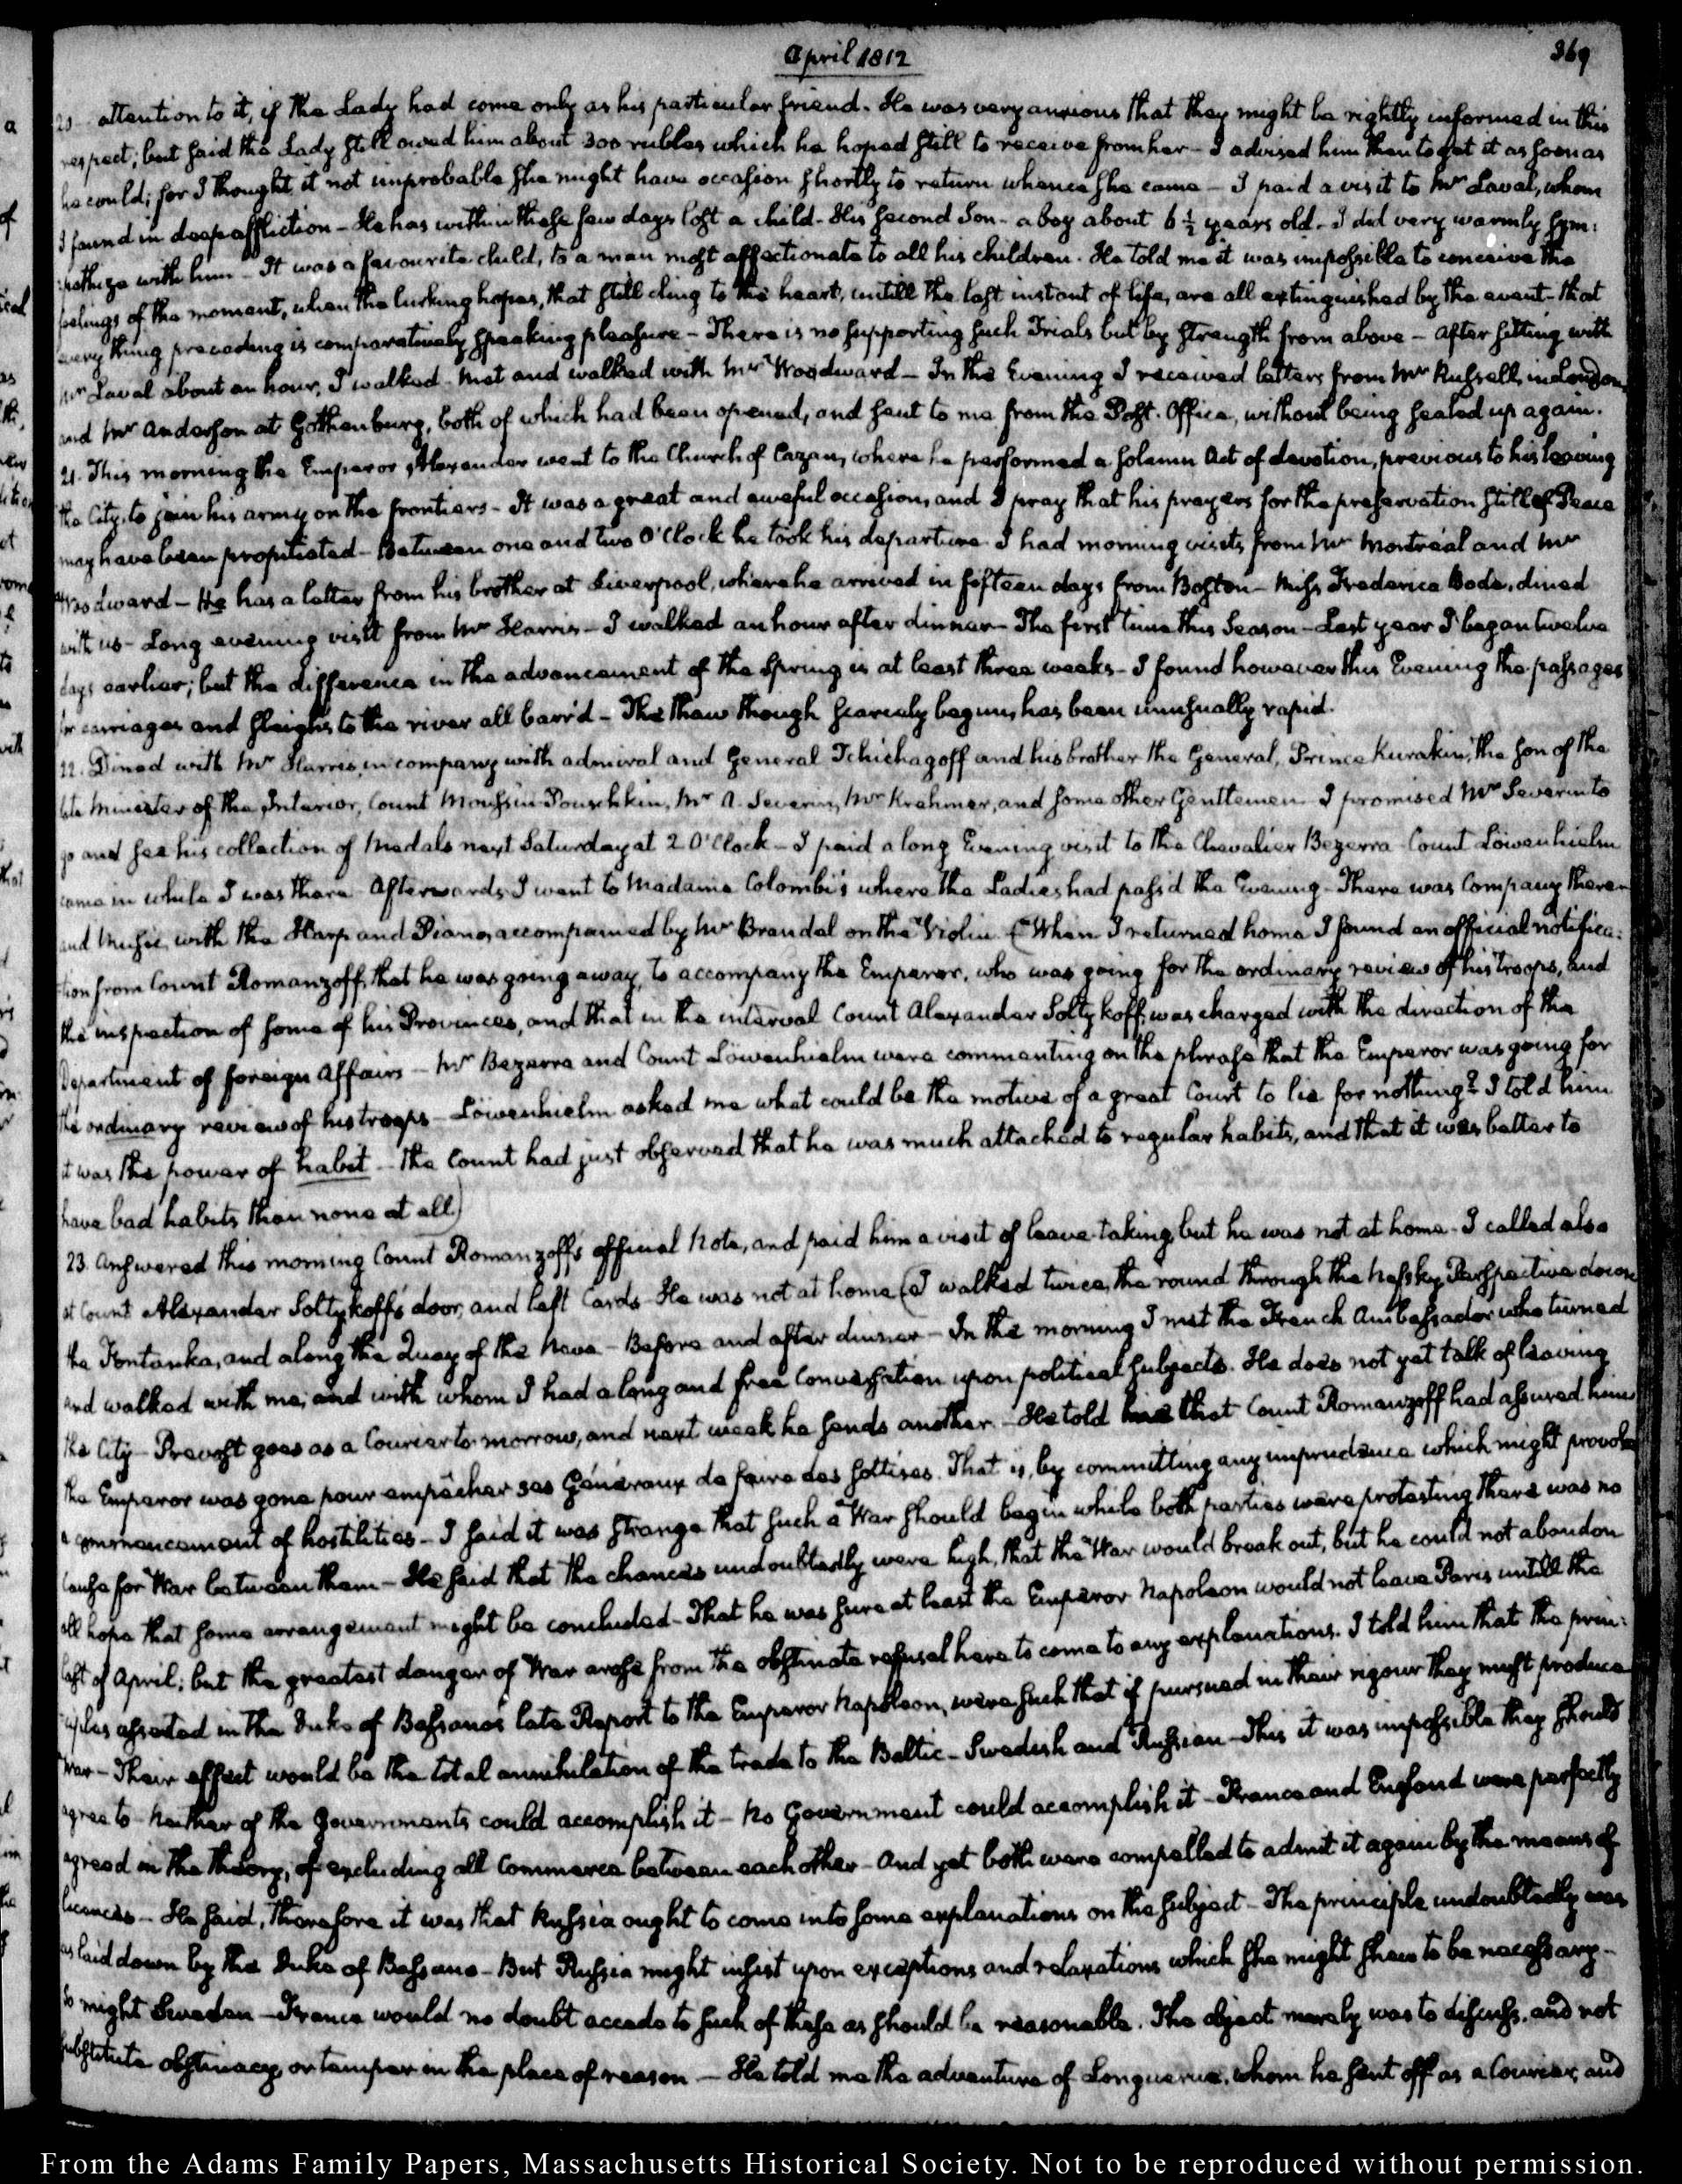 April 1812
369
20 attention to it, if the Lady had come only as his particular friend. He was very anxious that they might be rightly informed in this
respect; but said the Lady still owed him about 300 rubles which he hoped still to receive from her - I advised him then to get it as soon as
he could; for I thought it not improbable she might have occasion shortly to return whence she came - I paid a visit to Mr Laval, whom
I found in deep affliction - He has within these few days lost a child - His second Son - a boy about 6 ½ years old - I did very warmly sym:
pathize with him - It was a favourite child, to a man most affectionate to all his children. He told me it was impossible to conceive the
feelings of the moment, when the lurking hopes, that still cling to the heart, untill the last instant of life, are all extinguished by the event - that
every thing preceding is comparatively speaking pleasure - There is no supporting such Trials but by strength from above - After sitting with
Mr Laval about an hour, I walked - Met and walked with Mr Woodward - In the Evening I received letters from Mr Russell, in London,
and Mr Anderson at Gothenburg, both of which had been opened, and sent to me from the Post-Office, without being sealed up again.
21. This morning the Emperor Alexander went to the Church of Cazan, where he performed a solemn Act of devotion, previous to his leaving
the City, to join his army on the frontiers - It was a great and aweful occasion, and I pray that his prayers for the preservation still of Peace
may have been propitiated - Between one and two O'Clock he took his departure. I had morning visits from Mr Montréal and Mr
Woodward - He has a letter from his brother at Liverpool, where he arrived in fifteen days from Boston - Miss Frederica Bode, dined
with us - Long evening visit from Mr Harris - I walked an hour after dinner - The first time this Season - Last year I began twelve
days earlier; but the difference in the advancement of the Spring is at least three weeks - I found however this Evening the passages
for carriages and sleighs to the river all barr'd - The thaw though scarcely begun, has been unusually rapid.
22. Dined with Mr Harris, in company with admiral and General Tchichagoff and his brother the General, Prince Kurakin, the son of the
late Minister of the Interior, Count Moussin-Pouschkin, Mr A. Severin, Mr Krehmer, and some other Gentlemen - I promised Mr Severin to
go and see his collection of Medals next Saturday at 2 O'Clock - I paid a long Evening visit to the Chevalier Bezerra - Count Löwenhielm
came in while I was there - Afterwards I went to Madame Colombi's where the Ladies had pass'd the Evening - There was Company there -
and Music, with the Harp and Piano, accompanied by Mr Brandel on the Violin. (When I returned home I found an official notifica:
tion from Count Romanzoff, that he was going away, to accompany the Emperor, who was going for the ordinary review of his troops, and
the inspection of some of his Provinces, and that in the interval Count Alexander Soltykoff, was charged with the direction of the
Department of foreign Affairs - Mr Bezerra and Count Löwenhielm were commenting on the phrase that the Emperor was going for
the ordinary review of his troops - Löwenhielm asked me what could be the motive of a great Court to lie for nothing? I told him
it was the power of habit - The Count had just observed that he was much attached to regular habits, and that it was better to
have bad habits than none at all)
23. Answered this morning Count Romanzoff's official Note, and paid him a visit of leave-taking, but he was not at home - I called also
at Count Alexander Soltykoff's door, and left Cards - He was not at home (I walked twice, the round through the Nefsky Perspective down
the Fontanka, and along the Quay of the Neva - Before and after dinner - In the morning I met the French Ambassador who turned
and walked with me, and with whom I had a long and free Conversation upon political subjects. He does not yet talk of leaving
the City - Prevost goes as a Courier to-morrow, and next week he sends another - He told me that Count Romanzoff had assured him
the Emperor was gone pour empêcher ses Généraux de faire des sottises. That is, by committing any imprudence which might provoke
a commencement of hostilities - I said it was strange that such a War should begin while both parties were protesting there was no
cause for War between them - He said that the chances undoubtedly were high, that the War would break out, but he could not abandon
all hope that some arrangement might be concluded - That he was sure at least the Emperor Napoleon would not leave Paris untill the
last of April; but the greatest danger of War arose from the obstinate refusal here to come to any explanations. I told him that the prin:
ciples asserted in the Duke of Bassano's late Report to the Emperor Napoleon, were such that if pursued in their rigour they must produce
War - Their effect would be the total annihilation of the trade to the Baltic - Swedish and Russian - This it was impossible they should
agree to - Neither of the Governments could accomplish it - No Government could accomplish it - France and England were perfectly
agreed in the theory, of excluding all Commerce between each other - And yet both were compelled to admit it again by the means of
licences - He said, therefore it was that Russia ought to come into some explanations on the subject - The principle undoubtedly was
as laid down by the Duke of Bassano - But Russia might insist upon exceptions and relaxations which she might shew to be necessary -
So might Sweden - France would no doubt accede to such of these as should be reasonable. The object merely was to discuss, and not
substitute obstinacy or temper in the place of reason - He told me the adventure of Longuerue, whom he sent off as a Courier, and
From the Adams Family Papers, Massachusetts Historical Society. Not to be reproduced without permission.